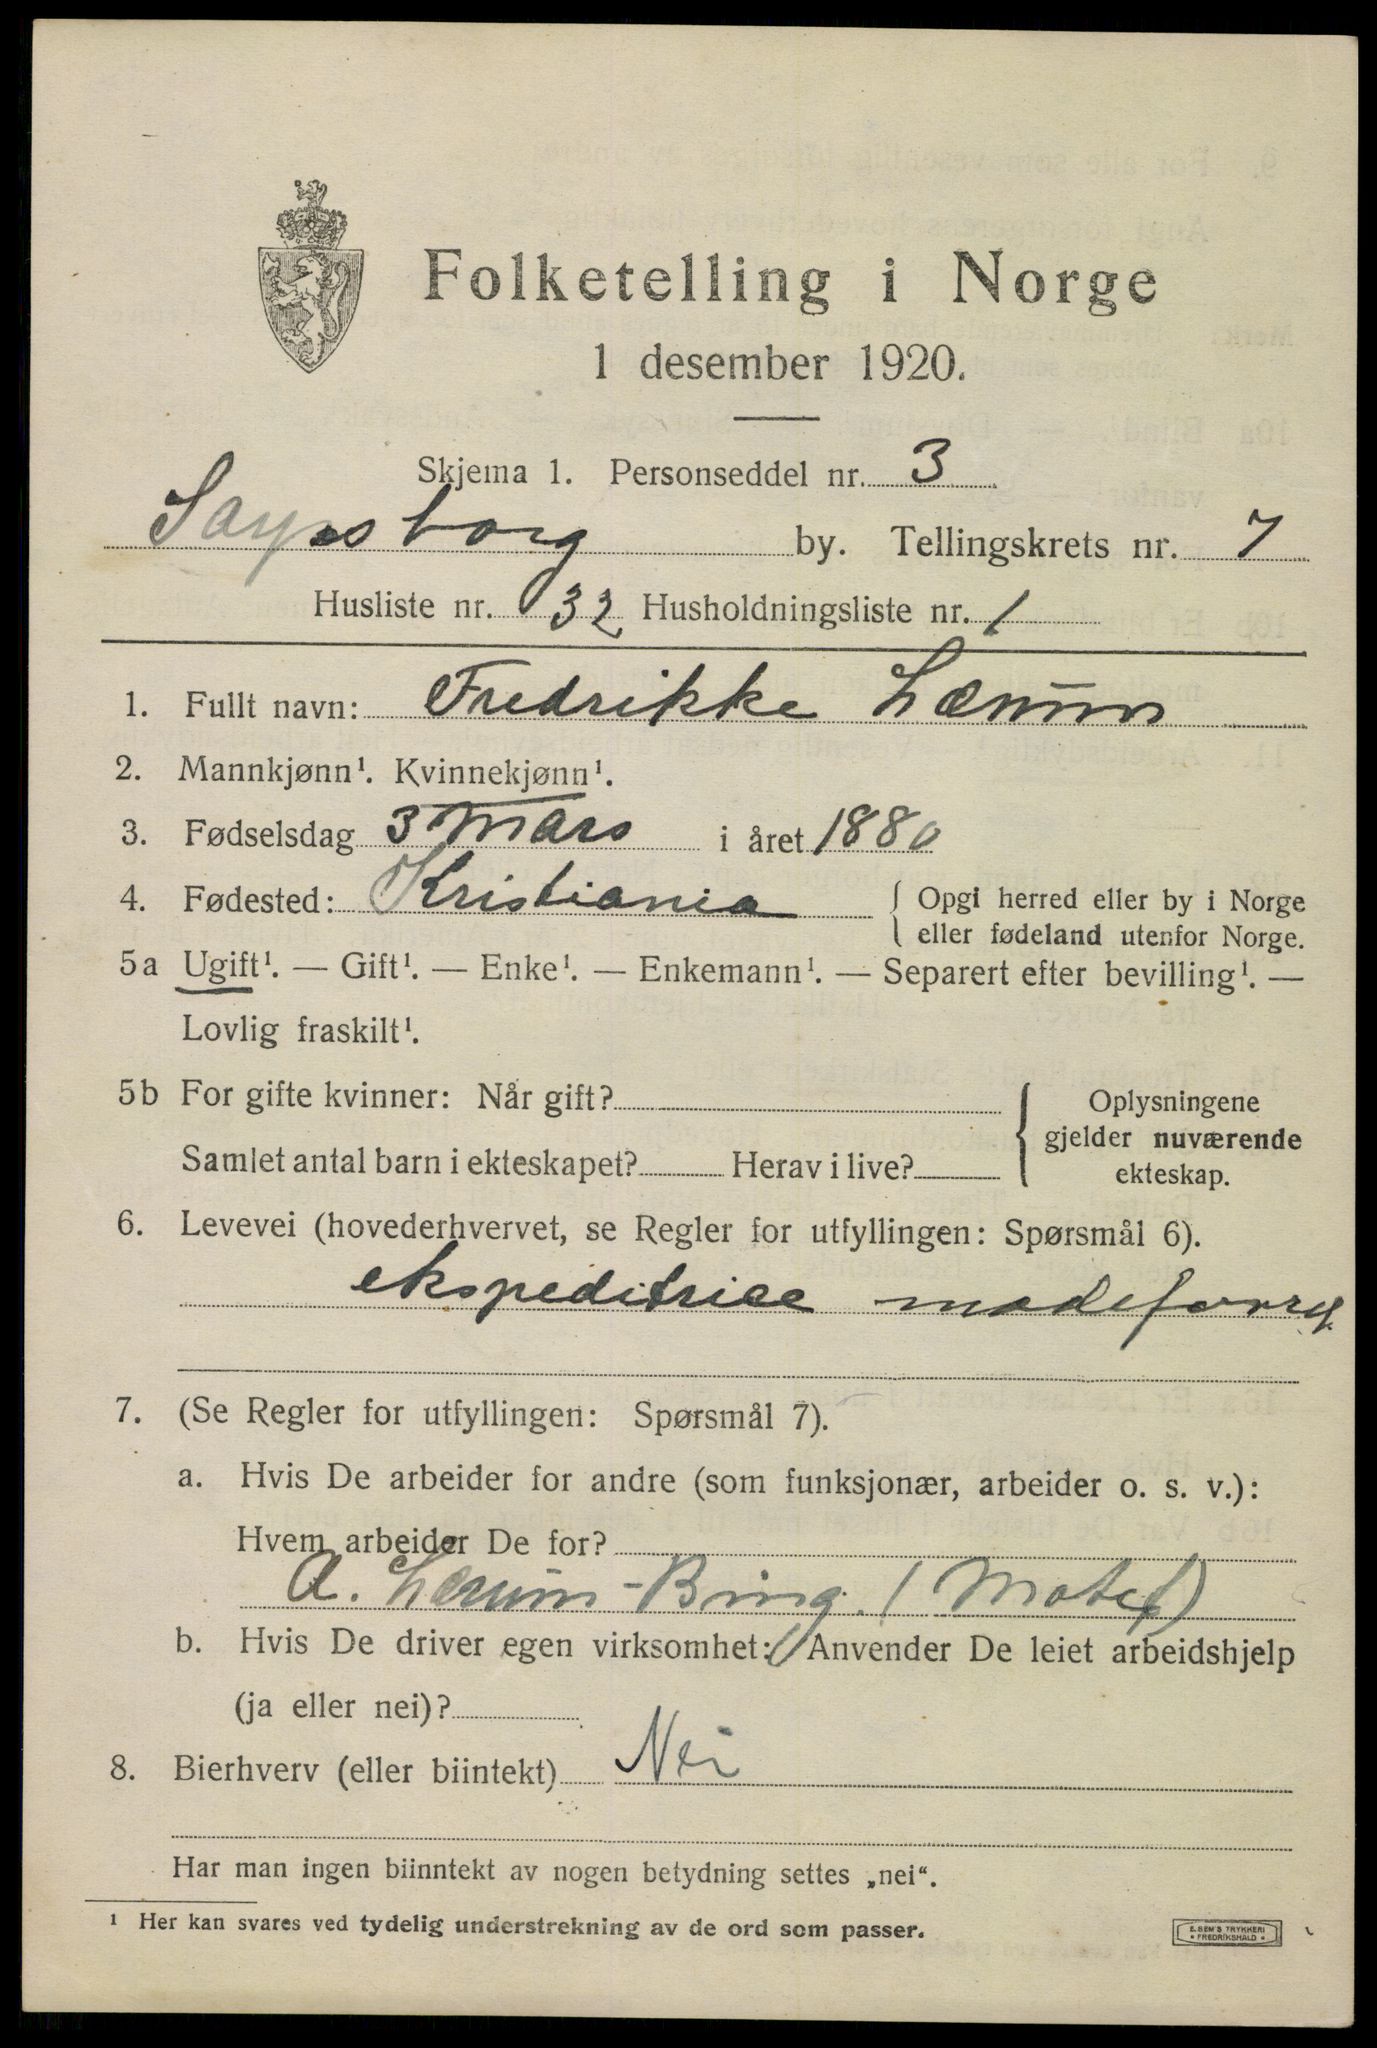 Folketelling i Norge
1 desember 1920.
Skjema 1. Personseddel nr. 3
Sarpsborg by. Tellingskrets nr. 7
Husliste nr. 32 Husholdningsliste nr. 1
1. Fullt navn: Fredrikke Lærum
2. Mannkjønn¹. Kvinnekjønn¹.
3. Fødselsdag 3 Mars i året 1880
4. Fødested: Kristiania { Opgi herred eller by i Norge
eller fødeland utenfor Norge.
5a Ugift¹. — Gift¹. — Enke¹. — Enkemann¹. — Separert efter bevilling¹. —
Lovlig fraskilt¹.
5b For gifte kvinner: Når gift?
Samlet antal barn i ekteskapet? Herav i live?
Oplysningene
gjelder nuværende
ekteskap.
6. Levevei (hovederhvervet, se Regler for utfyllingen: Spørsmål 6).
ekspeditrice modeforr.
7. (Se Regler for utfyllingen: Spørsmål 7).
a. Hvis De arbeider for andre (som funksjonær, arbeider o. s. v.):
Hvem arbeider De for?
A. Lærum-Bing. (Motef)
b. Hvis De driver egen virksomhet: Anvender De leiet arbeidshjelp
(ja eller nei)?
8. Bierhverv (eller biintekt) Nei
Har man ingen biinntekt av nogen betydning settes „nei“.
¹ Her kan svares ved tydelig understrekning av de ord som passer.
E. SEM'S TRYKKERI
• FREDRIKSHALD •